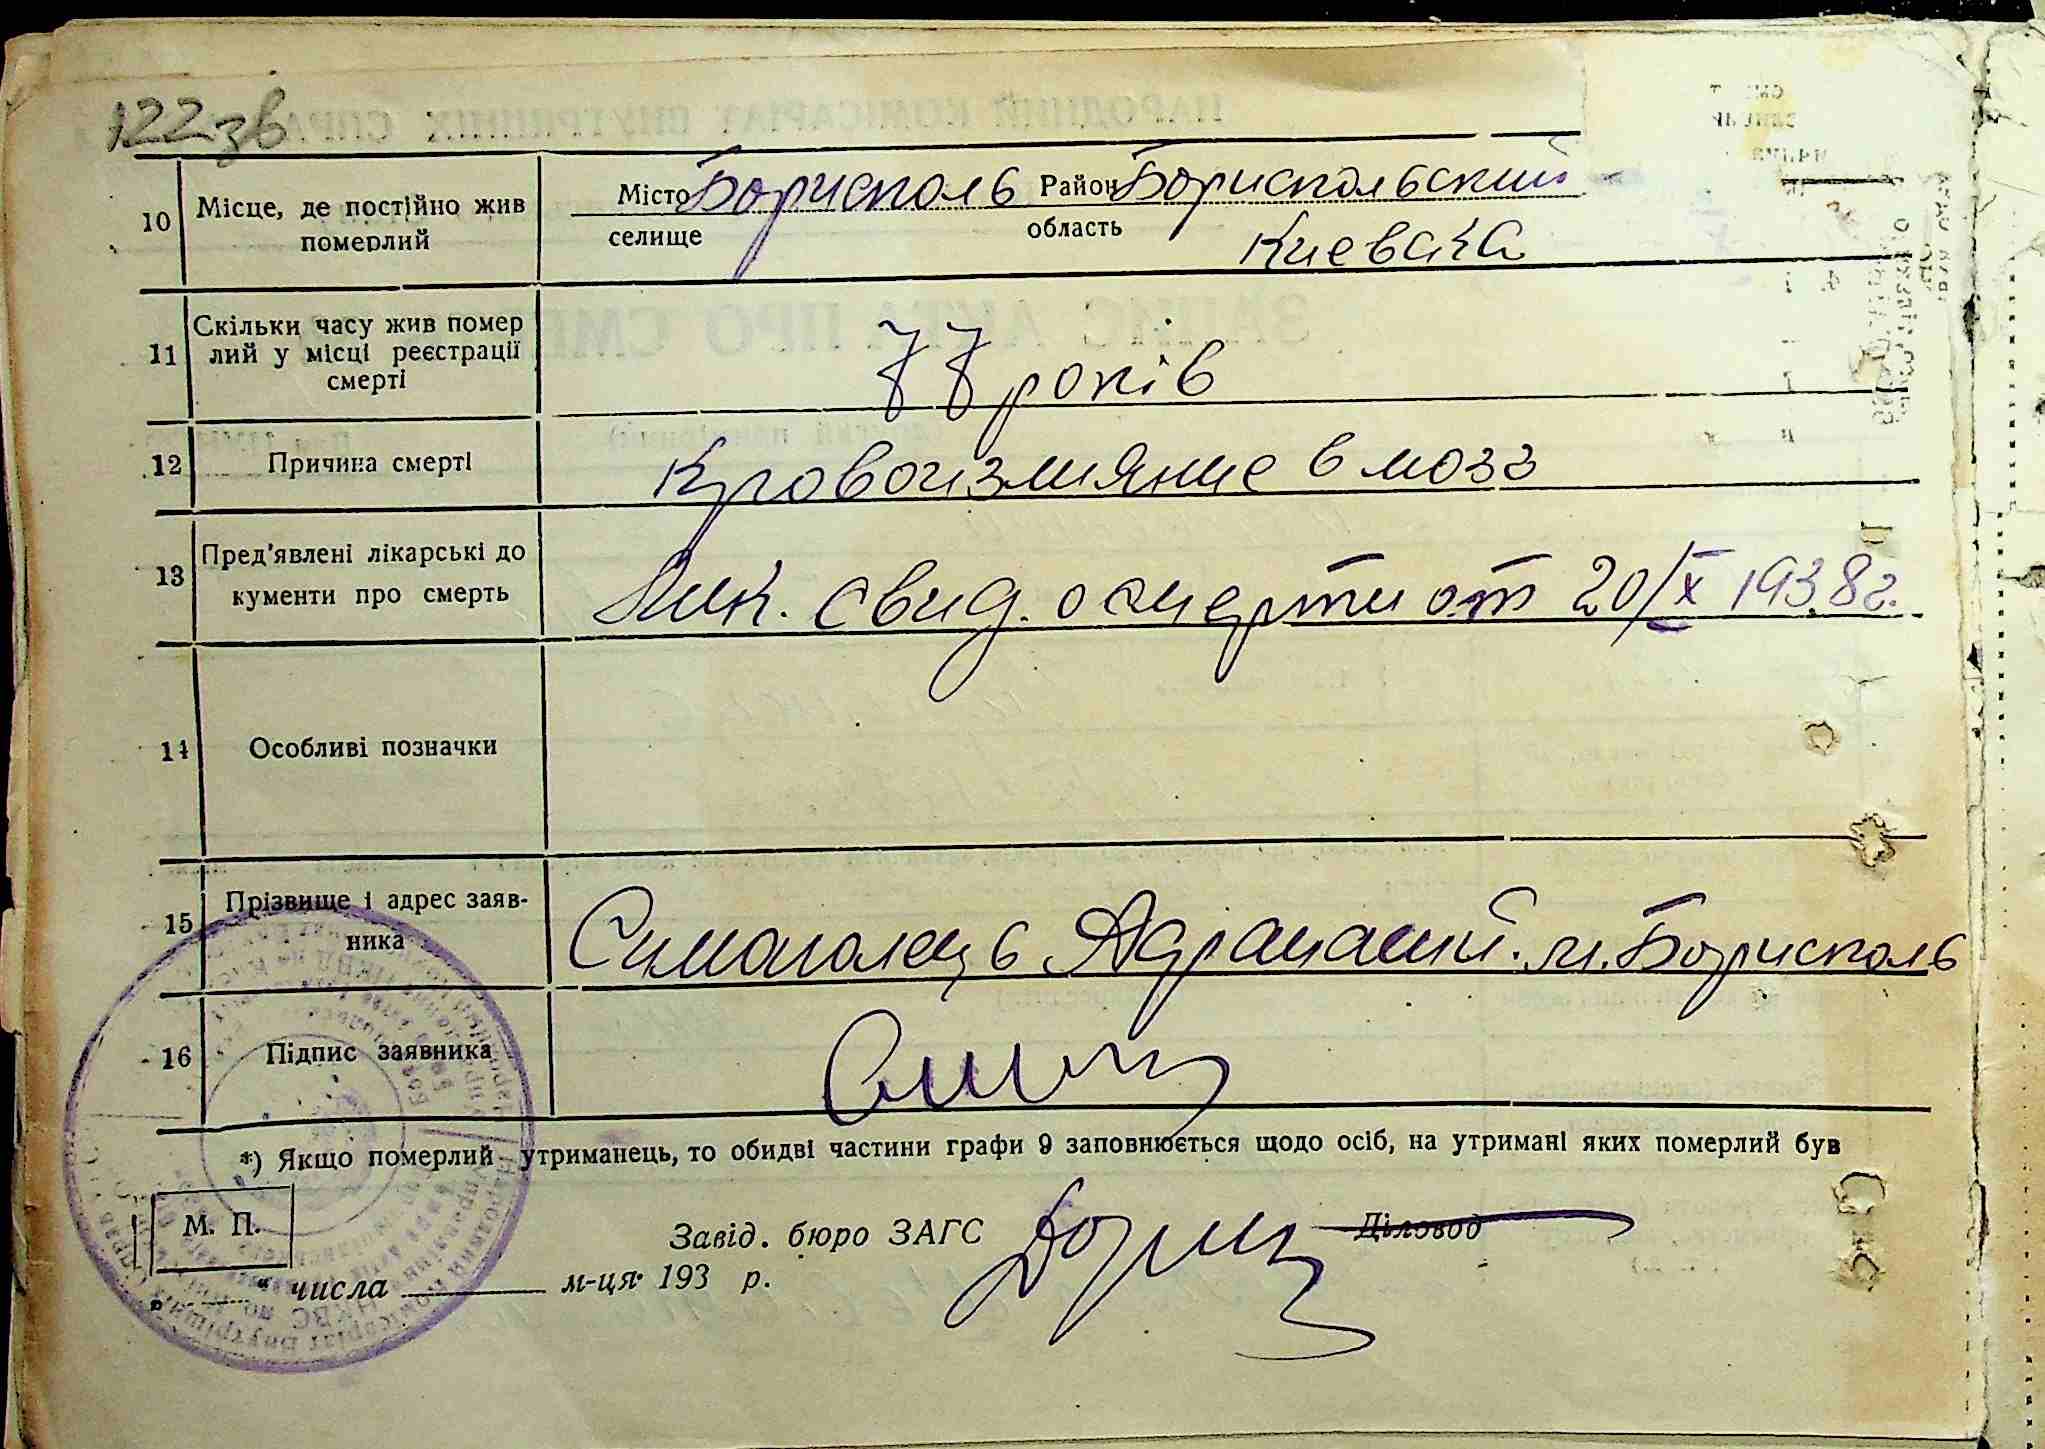 122 зв
10 Місце, де постійно жив померлий Місто Борисполь Район Бориспольский
селище область Киевска
11 Скільки часу жив помер
лий у місці реєстрації
смерті
77 років
12 Причина смерті Кровоизлияние в мозг
13 Пред'явлені лікарські до
кументи про смерть
Лик. свид. о смерти от 20/X 1938г.
14 Особливі позначки
15 Прізвище і адрес заяв-
ника
Симоголець м. Борисполь
16 Підпис заявника
*) Якщо померлий утриманець, то обидві частини графи 9 заповнюється щодо осіб, на утримані яких померлий був
М. П.
Завід. бюро ЗАГС Діловод
„ " числа м-ця 193 р.